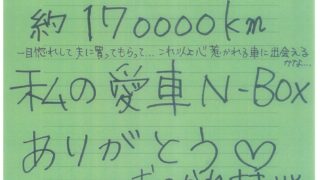 約170000km
一目惚れして夫に買ってもらって…これ以上心惹かれる車に出会える
かな…
私の愛車N-BOX
ありがとう♡